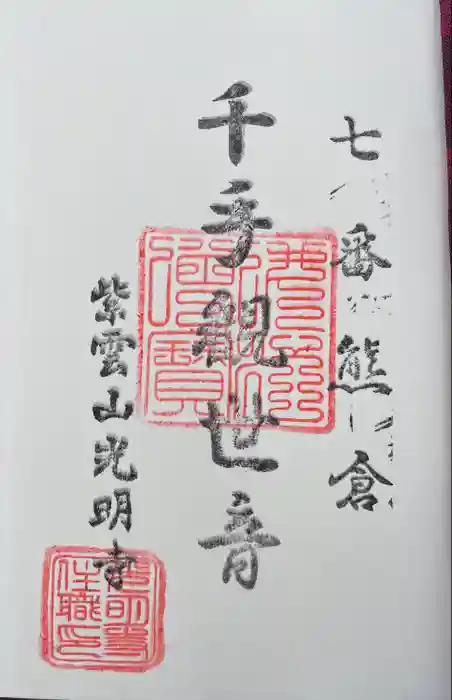 七番熊倉
千手観世音
紫雲山光明寺
光明寺
住職印